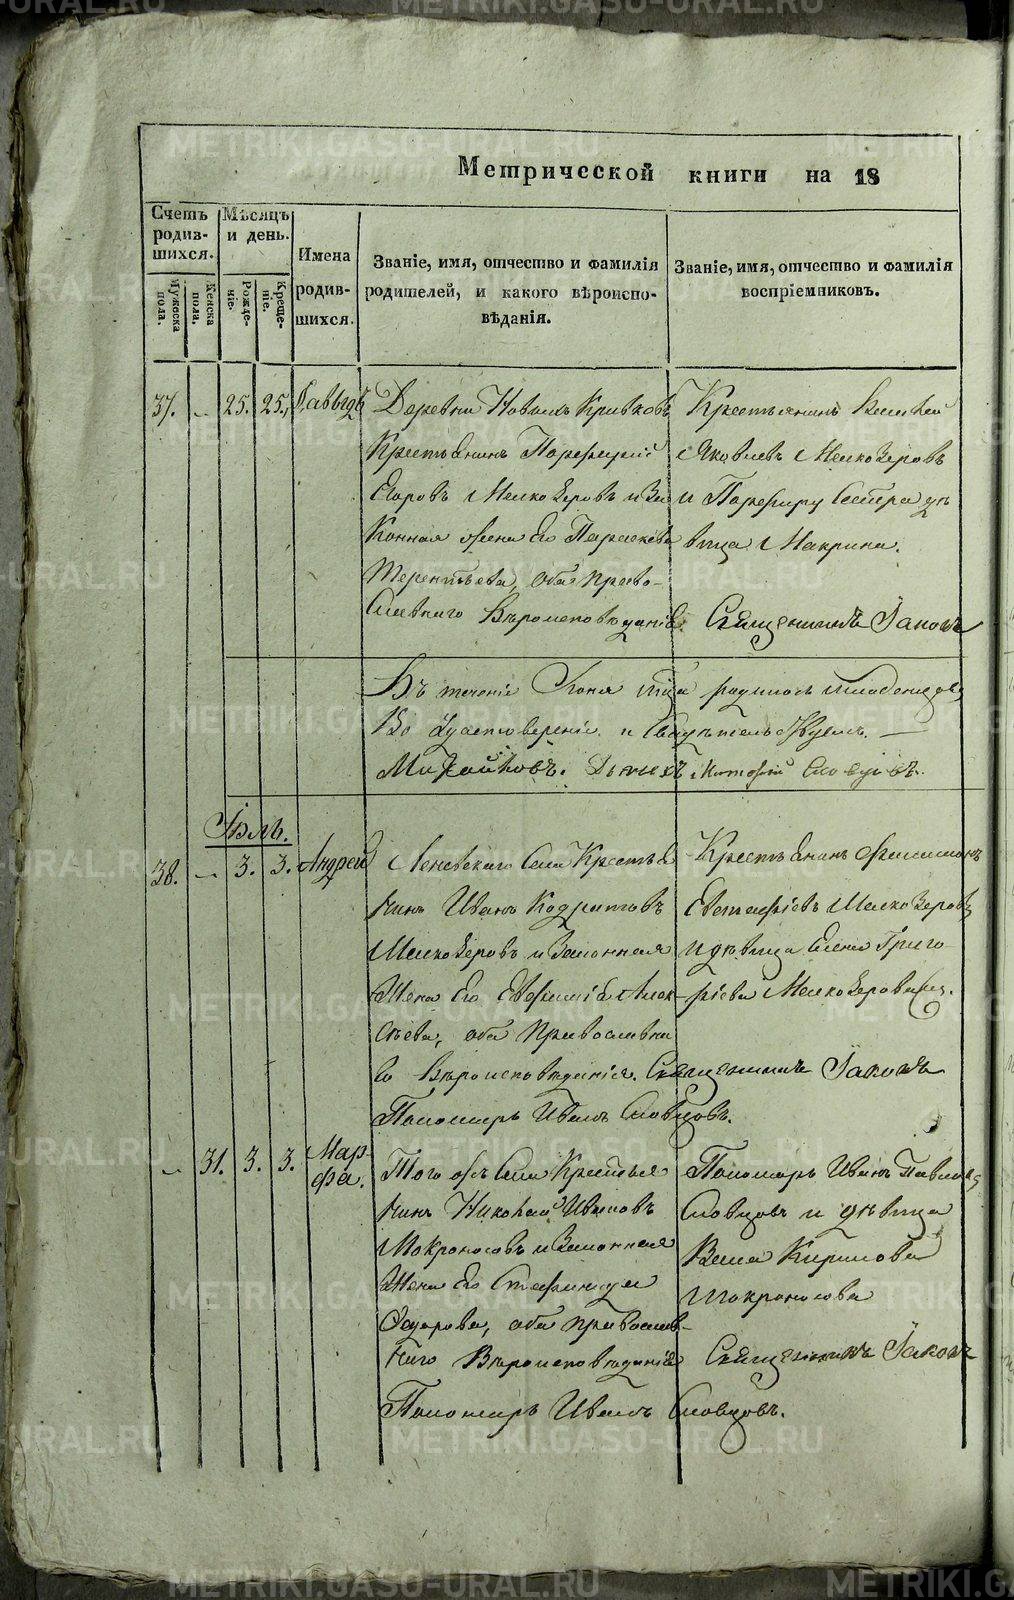 Метрической книги на 18
Счетъ родив-шихся.
Мѣсяцъ и день.
Имена родив-шихся.
Званіе, имя, отчество и фамилія родителей, и какого вѣроиспо-вѣданія.
Званіе, имя, отчество и фамилія воспріемниковъ.
Мужеска пола.
Женска пола.
Рожде-ніе.
Креще-ніе.
37. 25. 25. Давыдъ
Деревни Новыхъ Кривковъ
Крестьянинъ Порфирій
Егоровъ Мелкозеровъ и За
конная жена Его Параскева
Терентьева, оба право-
славнаго Вѣроисповѣданія.
Крестьянинъ
Яковлевъ Мелкозеровъ
и Порфиру Сестра дѣ
вица Макрина.
Священникъ Іаковъ
Въ теченіе Іюня родилось младенцовъ
Во удостовереніе и свидѣтельствуемъ.
Дьячекъ Словцовъ.
Іюль.
38. 3. 3. Андрей
Леневскаго Села Крестья
нинъ Иванъ Кодратовъ
Мелкозеровъ и Законная
Жена Его Евфимія Алек-
сѣева, оба православна
го Вѣроисповѣданія. Священникъ Іаковъ
Пономарь Иванъ Словцовъ.
Крестьянинъ Филимонъ
Евстафіевъ Мелкозеровъ
и дѣвица Елена Григо
рiева Мелкозерова.
31. 3. 3. Мар-
фа.
Того жъ Села Крестья
нинъ Николай Ивановъ
Мокроносовъ и Законная
Жена Его Стефанида
Федорова, оба православ-
наго Вѣроисповѣданія
Пономарь Иванъ Словцовъ.
Пономарь Иванъ Павловъ
Словцовъ и дѣвица
Васса Кирилова
Мокроносова
Священникъ Іаковъ
METRIKI.GASO-URAL.RU